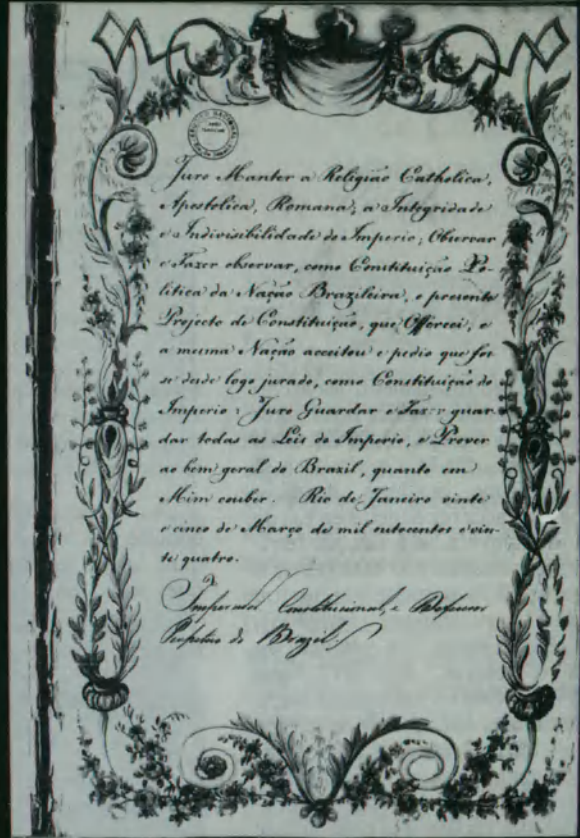 ARQUIVO NACIONAL
Juro Manter a Religião Catholica,
Apostolica, Romana; a Integridade
e Indivisibilidade do Imperio; Observar
e Fazer observar, como Constituição Po-
litica da Nação Brazileira, o presente
Projecto de Constituição, que Offereci, e
a mesma Nação acceitou e pedio que fos-
se desde logo jurado, como Constituição do
Imperio; Juro Guardar e Fazer guar-
dar todas as Leis do Imperio, e Prover
ao bem geral do Brazil, quanto em
Mim couber. Rio de Janeiro vinte
e cinco de Março de mil outocentos e vin-
te quatro.
Imperador Constitucional, e Defensor
Perpetuo do Brazil